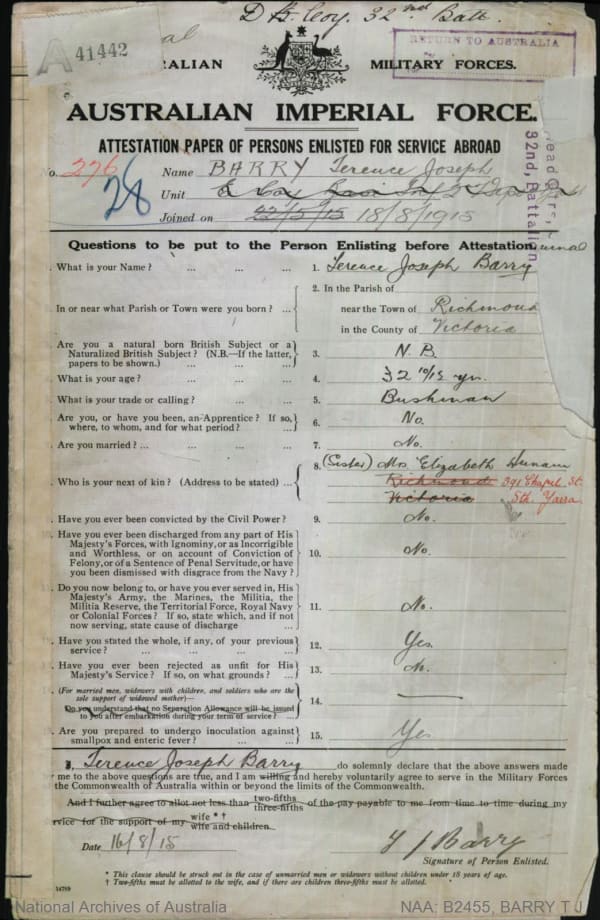 D Coy. 32nd Batt.
A 41442
RETURN TO AUSTRALIA
RALIAN MILITARY FORCES.
AUSTRALIAN IMPERIAL FORCE.
ATTESTATION PAPER OF PERSONS ENLISTED FOR SERVICE ABROAD
No. 276 Name BARRY Terence Joseph
26
Unit
Joined on 22/5/15 18/8/1915
32nd, Battalion
Questions to be put to the Person Enlisting before Attestation.
. What is your Name? ... ... ... 1. Terence Joseph Barry
. In or near what Parish or Town were you born? ... 2. In the Parish of
near the Town of Richmond
in the County of Victoria
. Are you a natural born British Subject or a
Naturalized British Subject? (N.B.—If the latter,
papers to be shown.) ... ... 3. N. B.
. What is your age? ... ... ... 4. 32 10/12 yrs.
. What is your trade or calling? ... ... 5. Bushman
. Are you, or have you been, an Apprentice? If so,
where, to whom, and for what period? ... 6. No.
. Are you married? ... ... ... 7. No.
8. (Sister) Mrs Elizabeth
. Who is your next of kin? (Address to be stated) ... Richmond 391 Chapel St.
Victoria Sth. Yarra
. Have you ever been convicted by the Civil Power? 9. No.
. Have you ever been discharged from any part of His
Majesty's Forces, with Ignominy, or as Incorrigible
and Worthless, or on account of Conviction of
Felony, or of a Sentence of Penal Servitude, or have
you been dismissed with disgrace from the Navy? 10. No.
. Do you now belong to, or have you ever served in, His
Majesty's Army, the Marines, the Militia, the
Militia Reserve, the Territorial Force, Royal Navy
or Colonial Forces? If so, state which, and if not
now serving, state cause of discharge ... 11. No.
. Have you stated the whole, if any, of your previous
service? ... ... ... ... 12. Yes.
. Have you ever been rejected as unfit for His
Majesty's Service? If so, on what grounds? ... 13. No.
. (For married men, widowers with children, and soldiers who are the
sole support of widowed mother)—
Do you understand that no Separation Allowance will be issued
to you after embarkation during your term of service? ... 14. —
. Are you prepared to undergo inoculation against
smallpox and enteric fever? ... ... 15. Yes
I, Terence Joseph Barry do solemnly declare that the above answers made
me to the above questions are true, and I am willing and hereby voluntarily agree to serve in the Military Forces
the Commonwealth of Australia within or beyond the limits of the Commonwealth.
And I further agree to allot not less than two-fifths three-fifths of the pay payable to me from time to time during my
rvice for the support of my wife * † wife and children.
Date 16/8/15 T J Barry
Signature of Person Enlisted.
* This clause should be struck out in the case of unmarried men or widowers without children under 18 years of age.
† Two-fifths must be allotted to the wife, and if there are children three-fifths must be allotted.
14789
National Archives of Australia NAA: B2455, BARRY T J